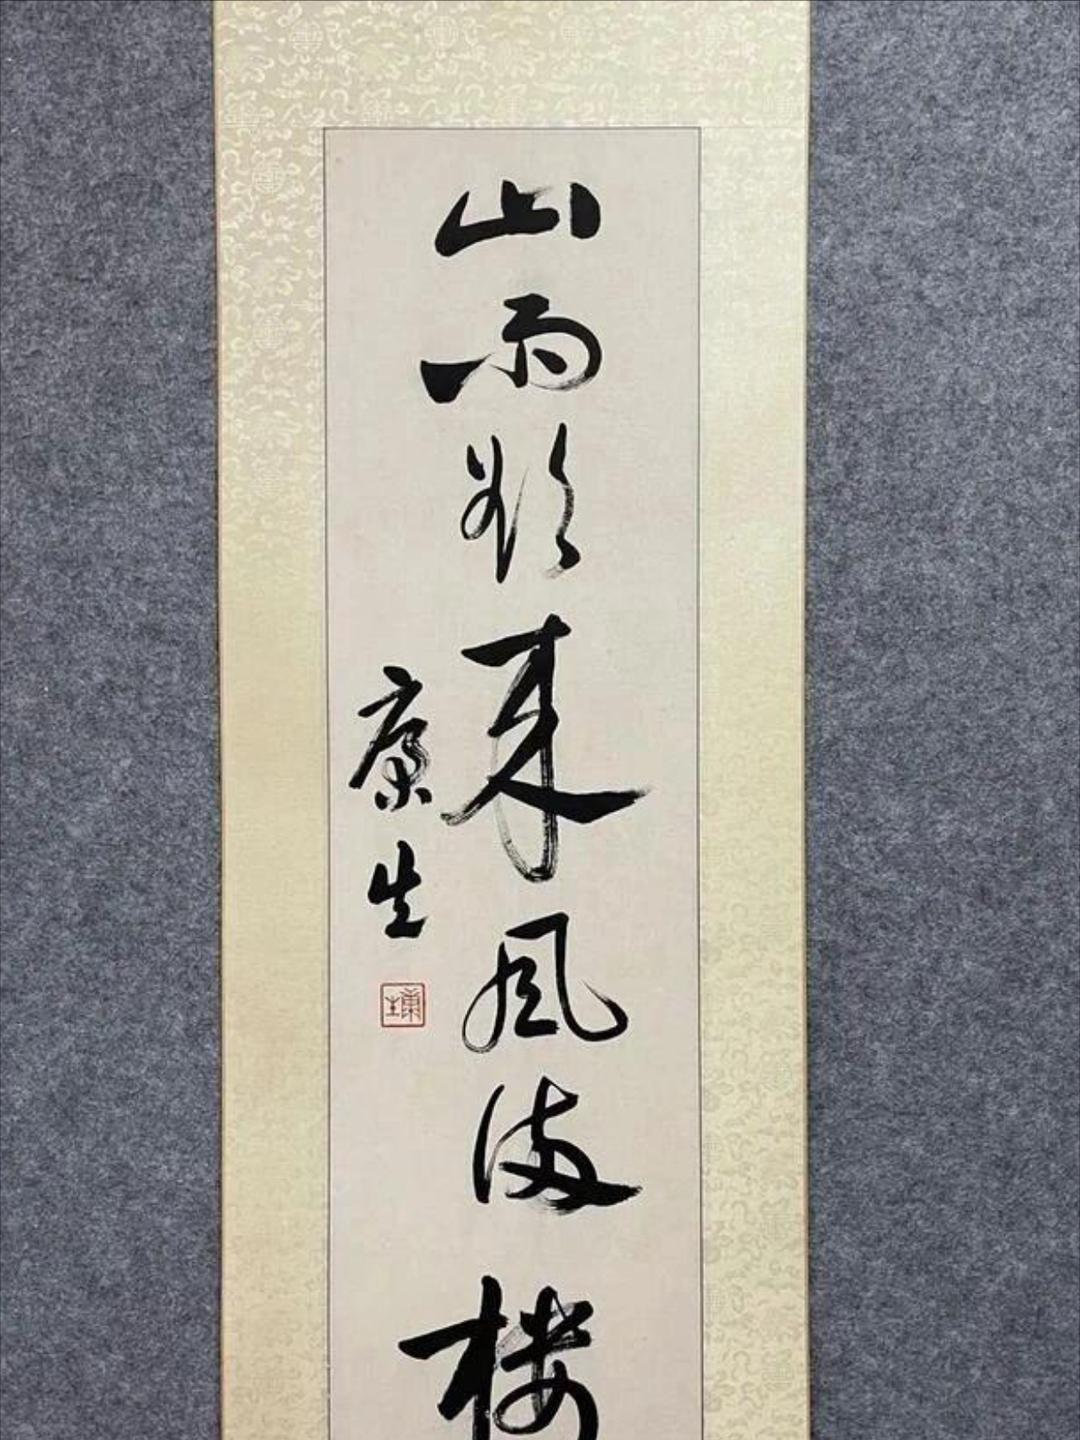 山雨欲来风满楼
康生
康生